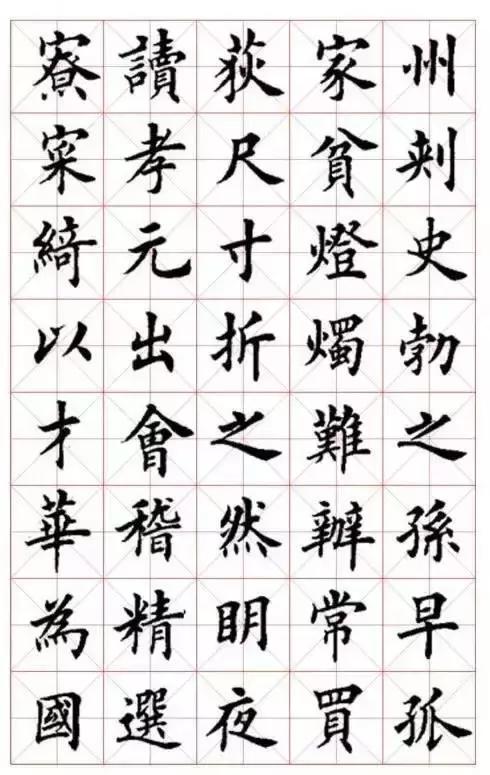 州刾史勃之孫早孤
家貧燈燭難辦常買
荻尺寸折之然明夜
讀孝元出會稽精選
寮寀綺以才華為國